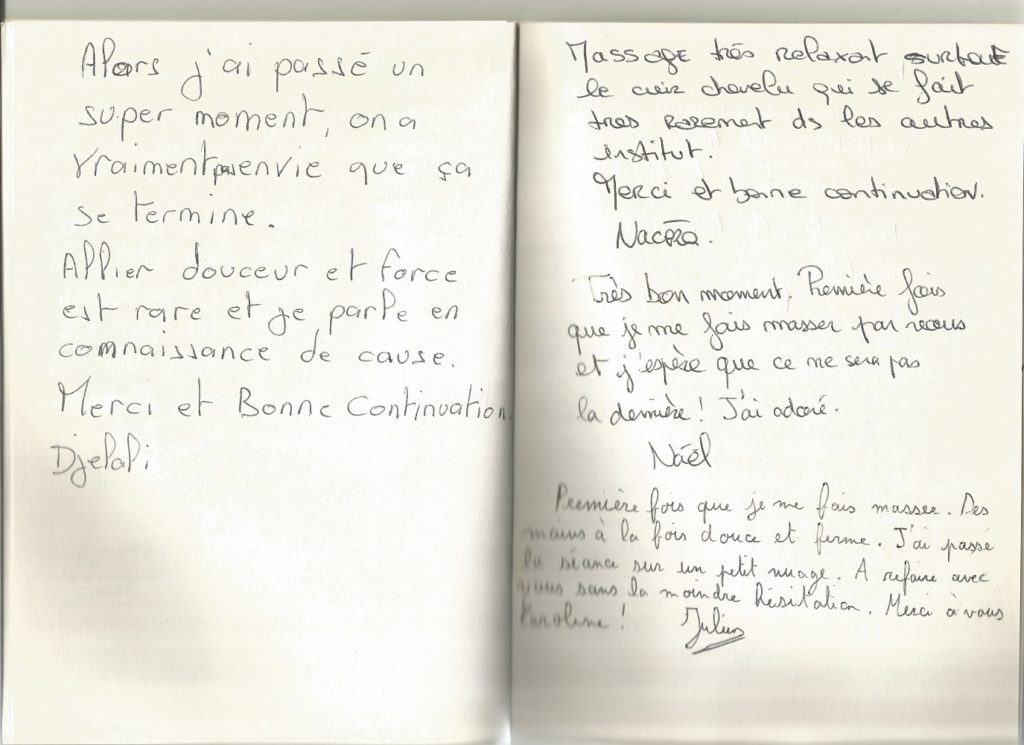 Alors j'ai passé un
super moment, on a
vraiment pas envie que ça
se termine.
Allier douceur et force
est rare et je parle en
connaissance de cause.
Merci et Bonne Continuation.
Djelali
Massage très relaxant surtout
le cuir chevelu qui se fait
très rarement ds les autres
institut.
Merci et bonne continuation.
Nacéra.
Très bon moment. Première fois
que je me fais masser par vous
et j'espère que ce ne sera pas
la dernière ! J'ai adoré.
Naël
Première fois que je me fais masser. Des
mains à la fois douce et ferme. J'ai passé
la séance sur un petit nuage. A refaire avec
vous sans la moindre hésitation. Merci à vous
Karoline !
Julien